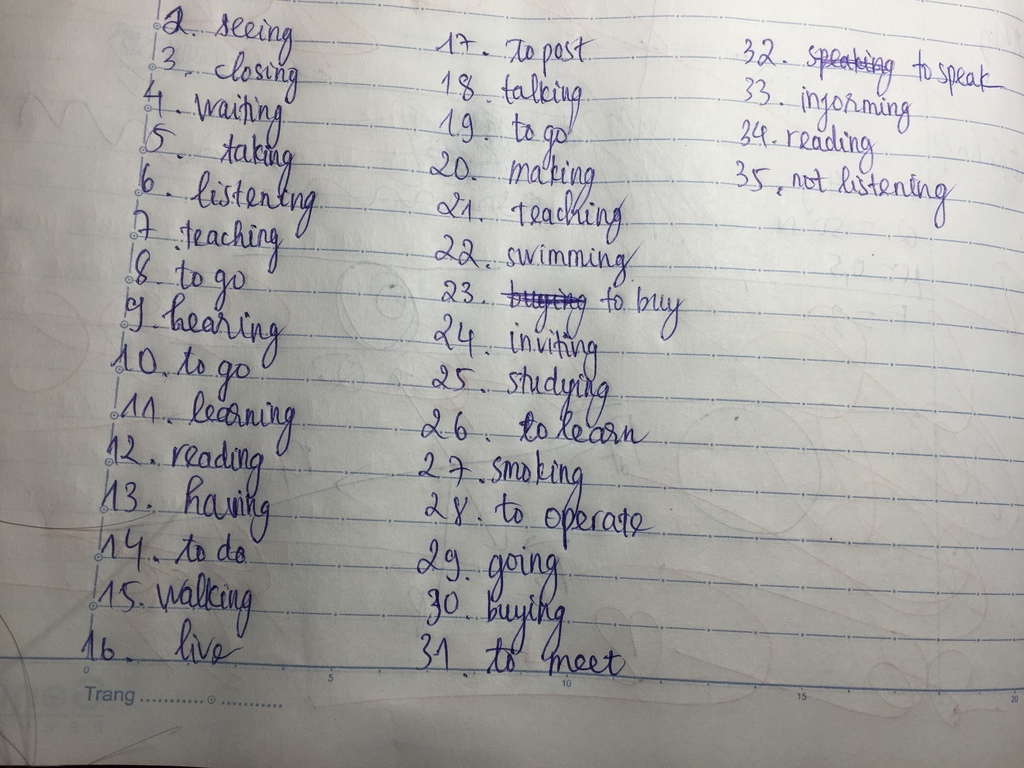 2. seeing
3. closing
4. waiting
5. taking
6. listening
7. teaching
8. to go
9. hearing
10. to go
11. learning
12. reading
13. having
14. to do
15. walking
16. live
17. to post
18. talking
19. to go
20. making
21. teaching
22. swimming
23. buying to buy
24. inviting
25. studying
26. to learn
27. smoking
28. to operate
29. going
30. buying
31. to meet
32. speaking to speak
33. informing
34. reading
35. not listening
0 5 10 15 20
Trang